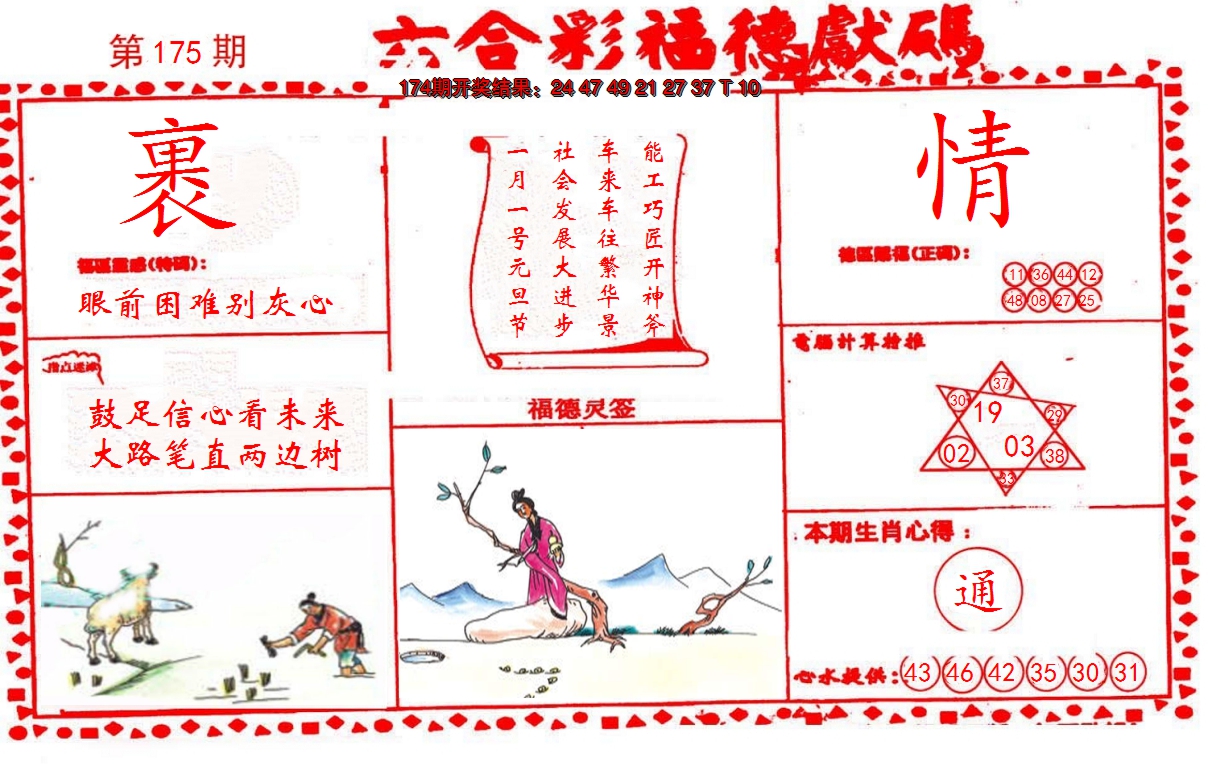 第175期
六合彩福德獻碼
174期开奖结果：24 47 49 21 27 37 T 10
裹
福區靈感(特碼)：
眼前困难别灰心
指点迷津
鼓足信心看未来
大路笔直两边树
能工巧匠开神斧
车来车往繁华景
社会发展大进步
一月一号元旦节
福德灵签
情
德區賜福(正碼)：
11 36 44 12
48 08 27 25
電腦計算抢推
37
30 19 29
02 03 38
33
本期生肖心得：
通
心水提供：43 46 42 35 30 31